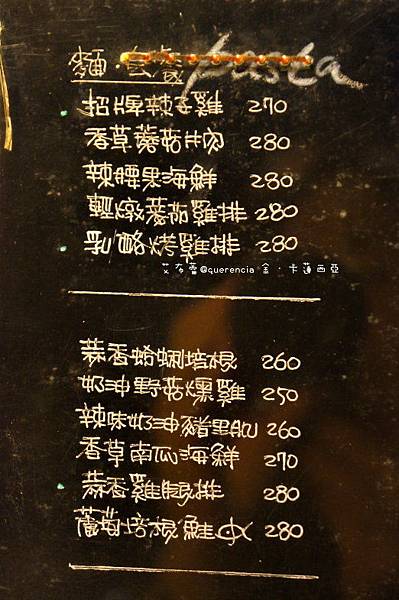 麵.套餐 pasta
招牌辣子雞 270
香草蘑菇片肉 280
辣腰果海鮮 280
輕燉蕃茄雞排 280
乳酪烤雞排 280
艾夯蕾@querencia 金.卡蓮西亞
蒜香蛤蜊培根 260
奶油野菇燻雞 250
辣味奶油豬里肌 260
香草南瓜海鮮 270
蒜香雞腿排 280
蘆筍培根鮭 280